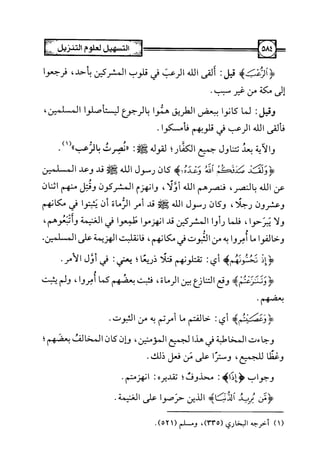 ٥٨٤
التسهيل لعلوم التنزيل
﴿ٱلرُّعْبَ﴾ قيل: ألقى الله الرعبَ في قلوب المشركين بأحد، فرجعوا
إلى مكة من غير سبب.
وقيل: لما كانوا ببعض الطريق همُّوا بالرجوع ليستأصلوا المسلمين،
فألقى الله الرعب في قلوبهم فأمسكوا.
والآية بعدُ تتناول جميع الكفَّار؛ لقوله ﷺ: «نُصِرتُ بالرُّعب»(١).
﴿وَلَقَدْ صَدَقَكُمُ ٱللَّهُ وَعْدَهُۥ﴾ كان رسول الله ﷺ قد وعد المسلمين
عن الله بالنصر، فنصرهم الله أوَّلًا، وانهزم المشركون وقُتِل منهم اثنان
وعشرون رجلًا، وكان رسول الله ﷺ قد أمر الرُّماة أن يثبتوا في مكانهم
ولا يَبرَحوا، فلما رأوا المشركين قد انهزموا طمِعوا في الغنيمة وأتْبَعُوهم،
وخالفوا ما أُمِروا به من الثُّبوت في مكانهم، فانقلبت الهزيمة على المسلمين.
﴿إِذْ تَحُسُّونَهُم﴾ أي: تقتلونهم قتلًا ذريعًا؛ يعني: في أوَّل الأمر.
﴿وَتَنَٰزَعْتُمْ﴾ وقع التنازع بين الرماة، فثبت بعضُهم كما أُمِروا، ولم يثبت
بعضهم.
﴿وَعَصَيْتُم﴾ أي: خالفتم ما أمرتم به من الثبوت.
وجاءت المخاطبة في هذا لجميع المؤمنين، وإن كان المخالفُ بعضهم؛
وعْظًا للجميع، وسترًا على من فعل ذلك.
وجواب ﴿إِذَا﴾: محذوفٌ؛ تقديره: انهزمتم.
﴿مَّن يُرِيدُ ٱلدُّنْيَا﴾ الذين حرَصوا على الغنيمة.
(١) أخرجه البخاري (٣٣٥)، ومسلم (٥٢١).